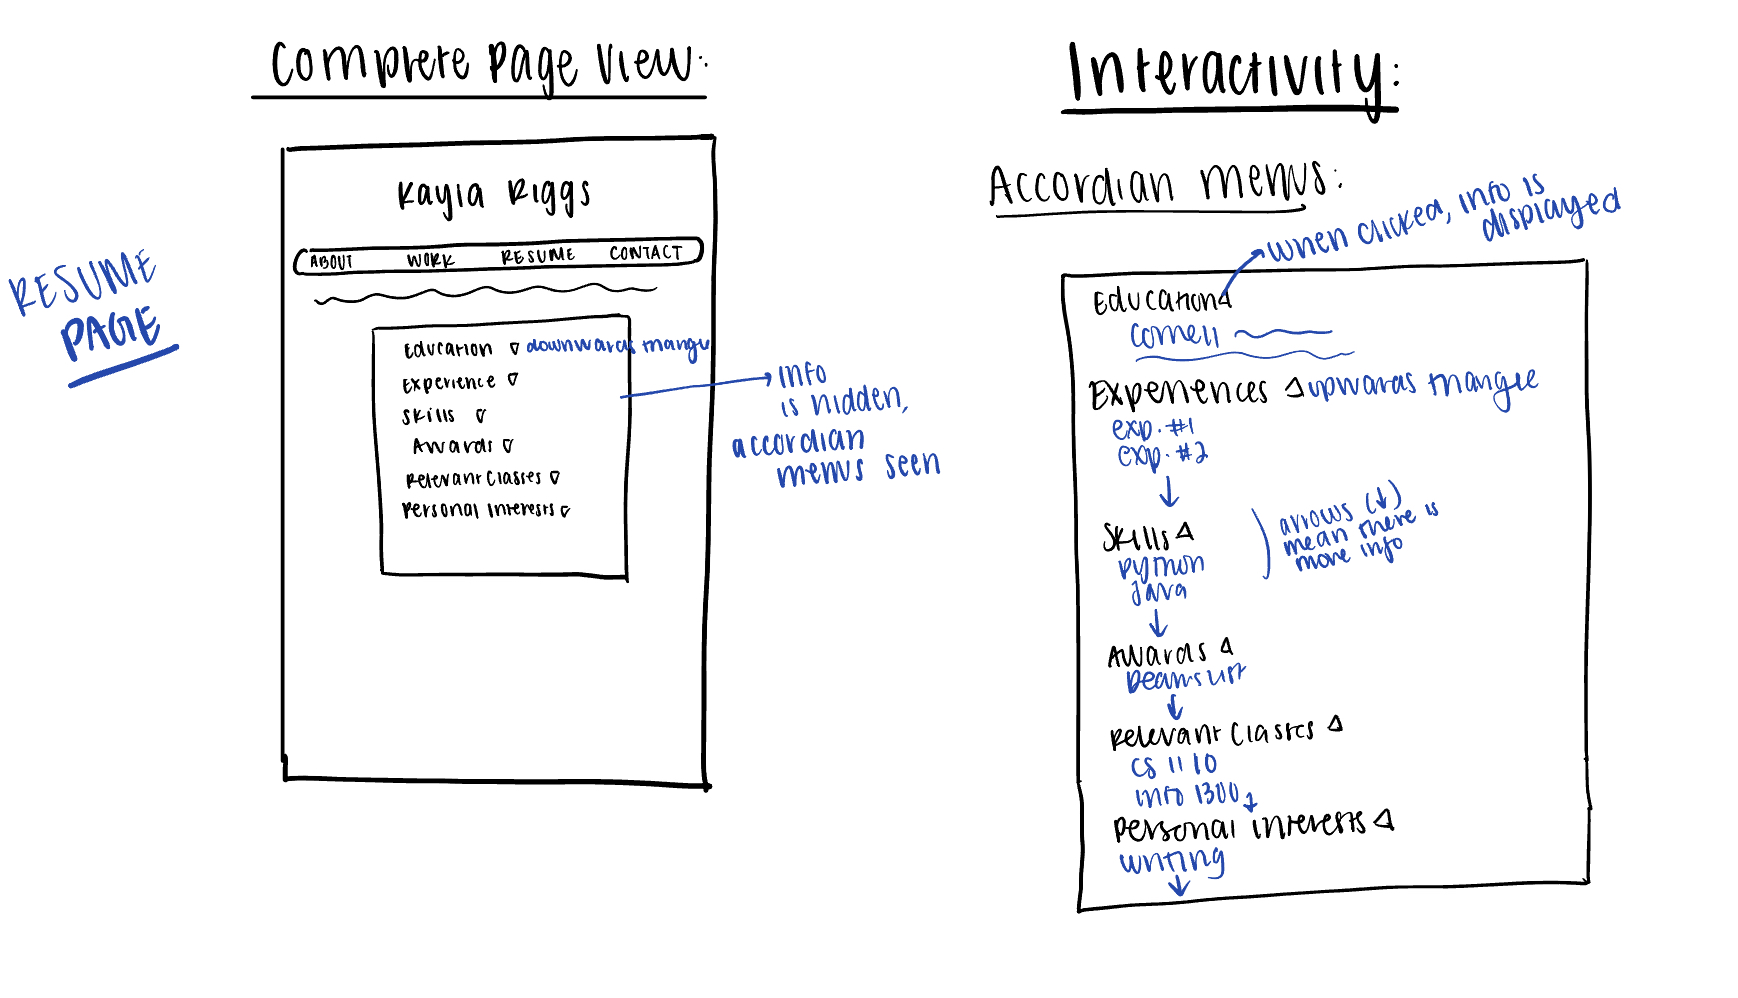 Complete Page View:
Interactivity:
RESUME
PAGE
Kayia Riggs
ABOUT WORK RESUME CONTACT
Education downwards triangle
Experience
Skills
Awards
Relevant Classes
Personal Interests
info
is hidden,
accordian
menus seen
Accordian menus:
when clicked, info is
displayed
Education
Cornell
Experiences upwards triangle
exp. #1
exp. #2
Skills
python
java
arrows (↓)
mean there is
more info
Awards
Deans list
Relevant Classes
CS 1110
info 1300
Personal Interests
writing